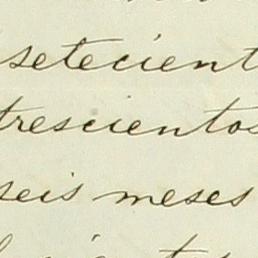 setecient
trescientos
seis meses